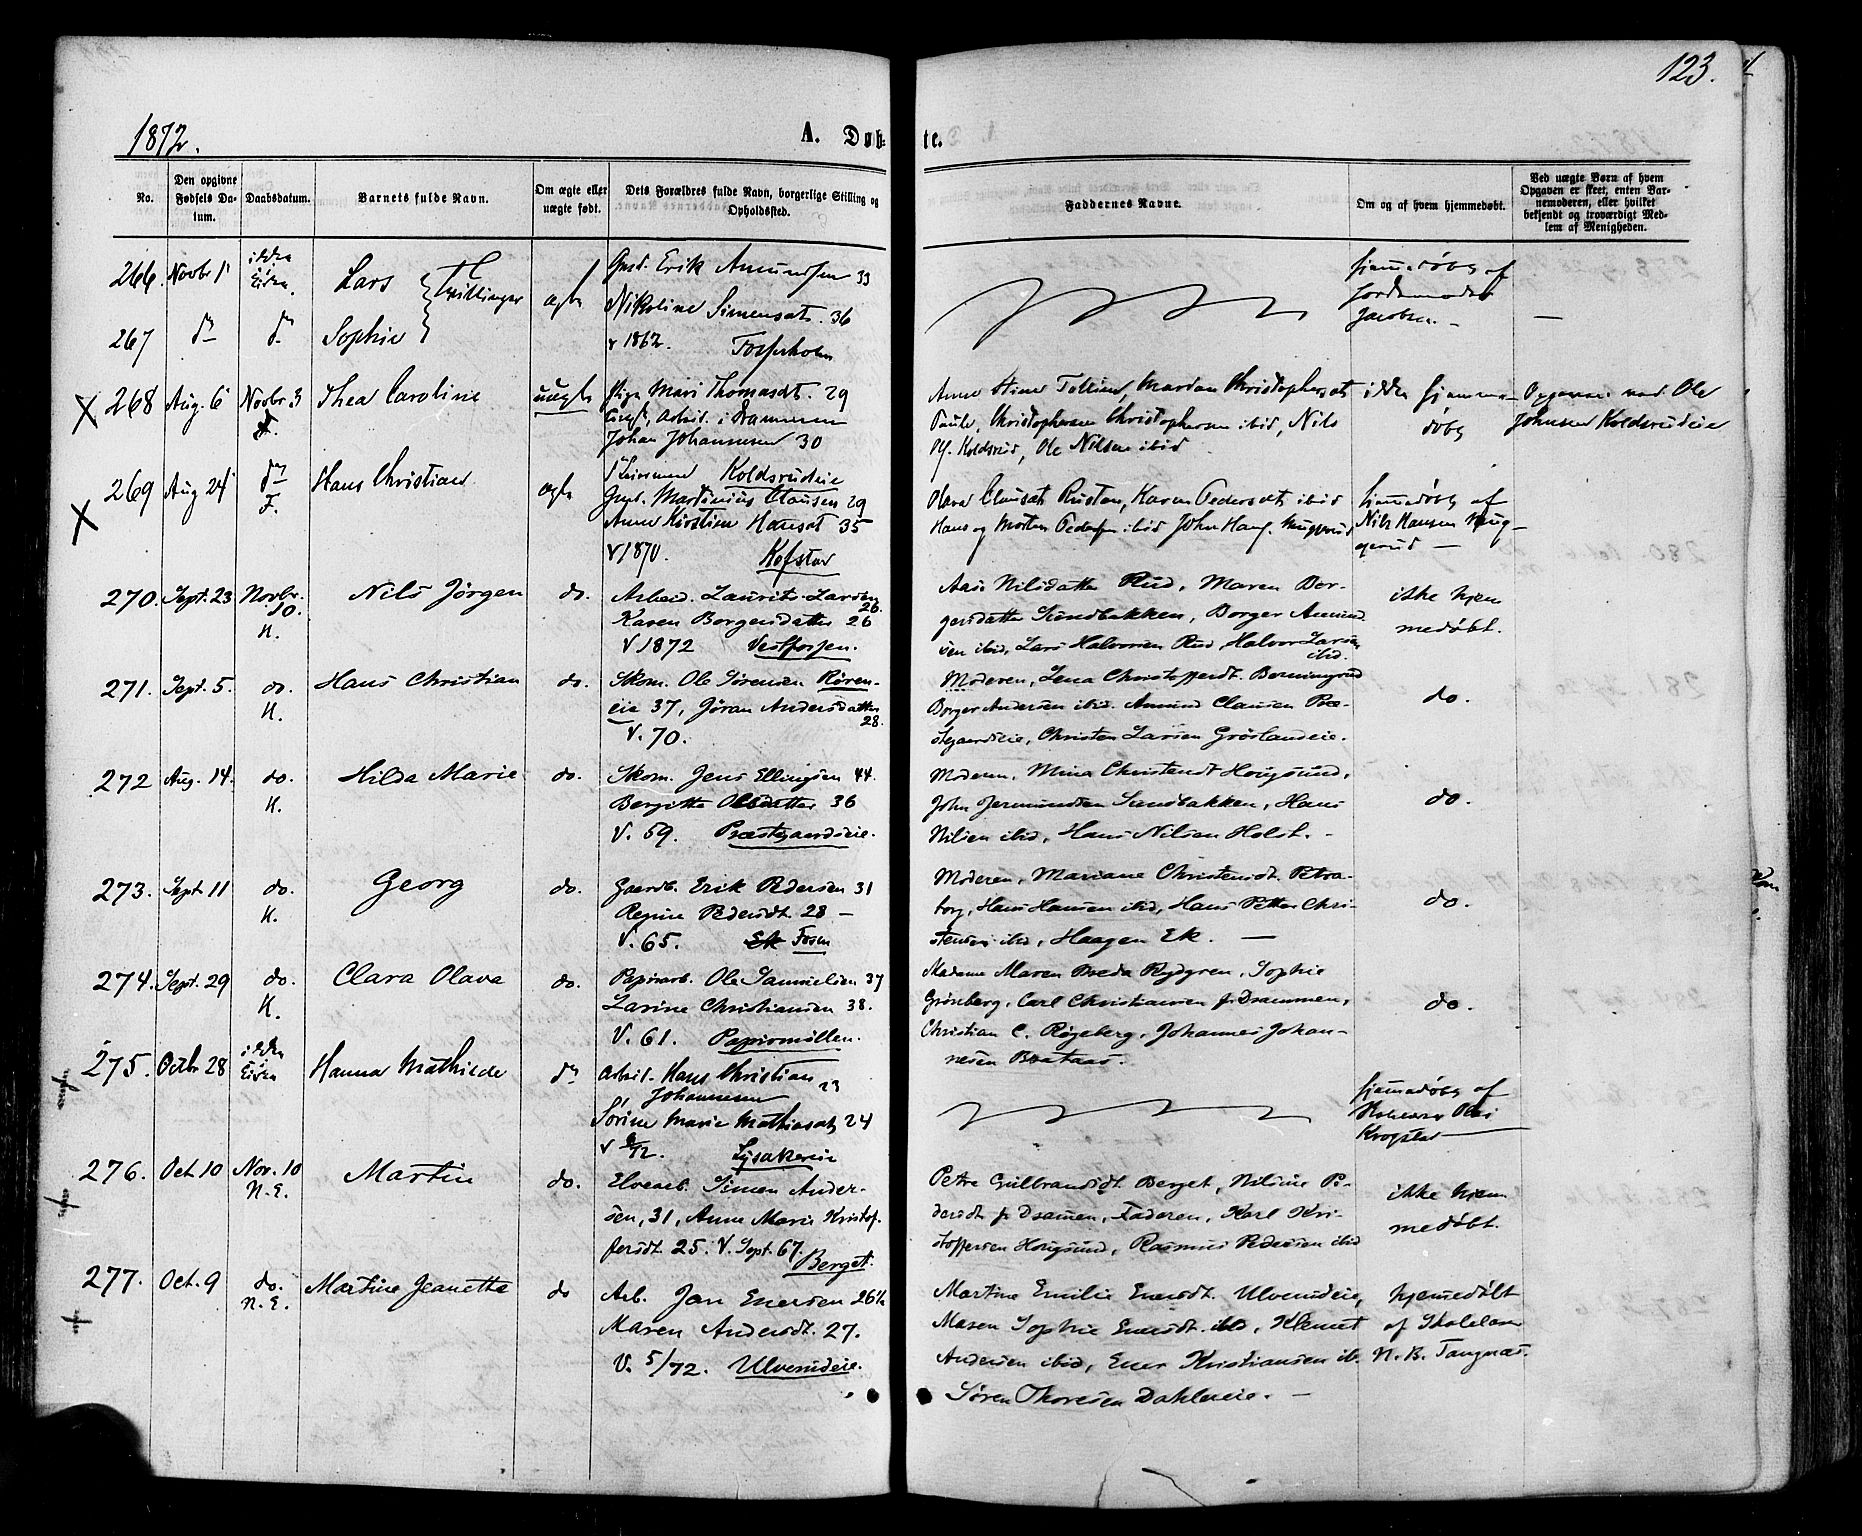 123.
1872.
A. Døb-
te.
No.
Den opgivne Fødsels Datum.
Daabsdatum.
Barnets fulde Navn.
Om ægte eller uægte født.
Dets Forældres fulde Navn, borgerlige Stilling og Opholdssted.
Faddernes Navne.
Om og af hvem hjemmedøbt.
Ved uægte Børn af hvem Opgaven er skeet, enten Barnemoderen, eller hvilket bekjendt og troværdigt Medlem af Menigheden.
266. Novbr 1 Lars Tvillinger ægte Erik Amundsen 33
Nikoline Simensdt. 36
267 dn dn Sophie
v 1862. Fosserholm
hjemmedøbt af
Jordemoder
Jacobsen. –
268 Aug. 6 Novbr 3 Thea Caroline uægte Pige Mari Thomasdt. 29
F. Arbeid. i Drammen
Johan Johannesen 30
Koldsrudeie
Anne Stine Tollevs, Marian Christophersdt
Paule, Christophersen Christophersen ibid, Nils
Ol. Koldsrud, Ole Nilsen ibid
ikke hjemme-
døbt
Opgaven ved Ole
Johnsen Koldsrudeie
269 Aug 24 dn Hans Christian ægte
F. Martinius Clausen 29
Anne Kirstine Hansdt 35
v 1870. Kofstad
Olava Clausdt Rusten, Karen Pedersdt ibid
Hans og Morten Pedersen ibid John Hans.
hjemmedøbt af
Nils Hansen Mug-
gerud –
270. Sept. 23 Novbr. 10. Nils Jørgen do. Arbeid. Laurits Larsen 26.
K. Karen Borgersdatter 26
V 1872 Vestfossen.
Aase Nilsdatter Rud, Maren Bor-
gersdatter Sundbakken, Borger Amund-
sen ibid, Lars Halvorsen Rud, Halvor Larsen
ibid.
ikke hjem
medøbt.
271. Sept. 5. do. Hans Christian do. Skom. Ole Sørensen Røren-
K. eie 37, Jøran Andersdatter 28.
V. 70.
Moderen, Lena Christoffersdt.
Borger Andersen ibid. Amund Clausen Præ-
stegaardseie, Christen Larsen Grøslandeie.
do.
272 Aug. 14. do. Hilda Marie do. Skom. Jens Ellingsen 44.
K. Bergitte Olsdatter 36
V. 59. Præstegaardseie.
Moderen, Mina Christensdt Hougsund,
John Jermundsen Sundbakken, Hans
Nilsen ibid, Hans Nilsen Holst. –
do.
273. Sept 11 do. Georg do. Gaardb. Erik Pedersen 31
K. Regine Pedersdt. 28 –
V. 65. Ek Fosen
Moderen, Mariane Christensdt. Petra-
borg, Hans Hansen ibid, Hans Petter Chri-
stensen ibid, Haagen Ek. –
do.
274. Sept. 29 do. Clara Olava do. Papirarb. Ole Samuelsen 37
K. Larine Christiansen 38.
V. 61. Papirmøllen.
Madame Maren Breda Rydgren, Sophie
Grønberg, Carl Christiansen fr Drammen,
Christian C. Røgeberg, Johannes Johan-
nesen Braataas.
do.
275. Octbr 28 Hanna Mathilde dn Arbeid. Hans Christian
Johannesen 23
Sørine Marie Mathiasdt 24
v /72.
hjemmedøbt af
Krogstad
276. Oct 10 Nov. 10 Martin do. Elvearb. Simen Ander-
N.E. sen, 31, Anne Marie Kristof-
fersdt. 25. V. Sept. 67.
Berget.
Petre Gulbrandsdt. Berget, Nilsine Pe-
dersdt fr Dramen, Faderen, Karl Kri-
stoffersen Hougsund, Rasmus Pedersen ibid
ikke hjem
medøbt.
277. Oct. 9 do. Martine Jeanette do Arb. Jan Enersen 26½
N.E. Maren Andersdt. 27.
V. 5/72. Ulverudeie.
Martine Emilie Enersdt. Ulverudeie,
Maren Sophie Enersdt. ibid, Klemet
Andersen ibid, Ener Kristiansen ib.
Søren Thoresen Dahleneie. –
hjemmedøbt
af Skolelær
N.B. Tangnæs.